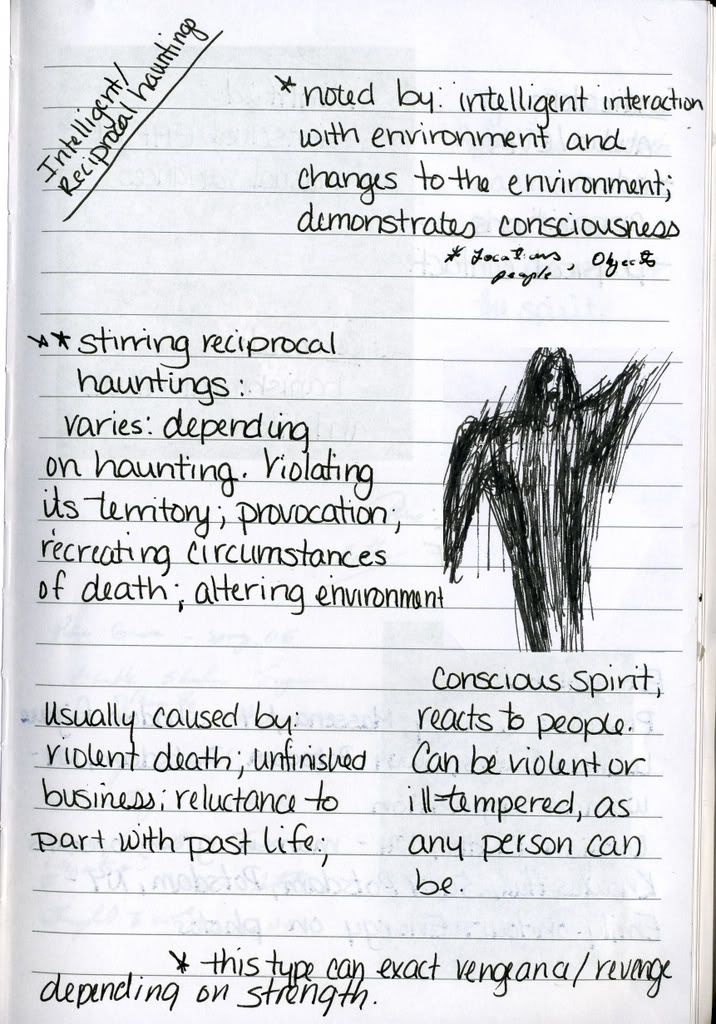 Intelligent/
Reciprocal hauntings
* noted by: intelligent interaction
with environment and
changes to the environment;
demonstrates consciousness
* Locations, Objects
people
** stirring reciprocal
hauntings:
varies: depending
on haunting. Violating
its territory; provocation;
recreating circumstances
of death; altering environment
Usually caused by:
violent death; unfinished
business; reluctance to
part with past life;
Conscious spirit,
reacts to people.
Can be violent or
ill-tempered, as
any person can
be.
* this type can exact vengeance/revenge
depending on strength.